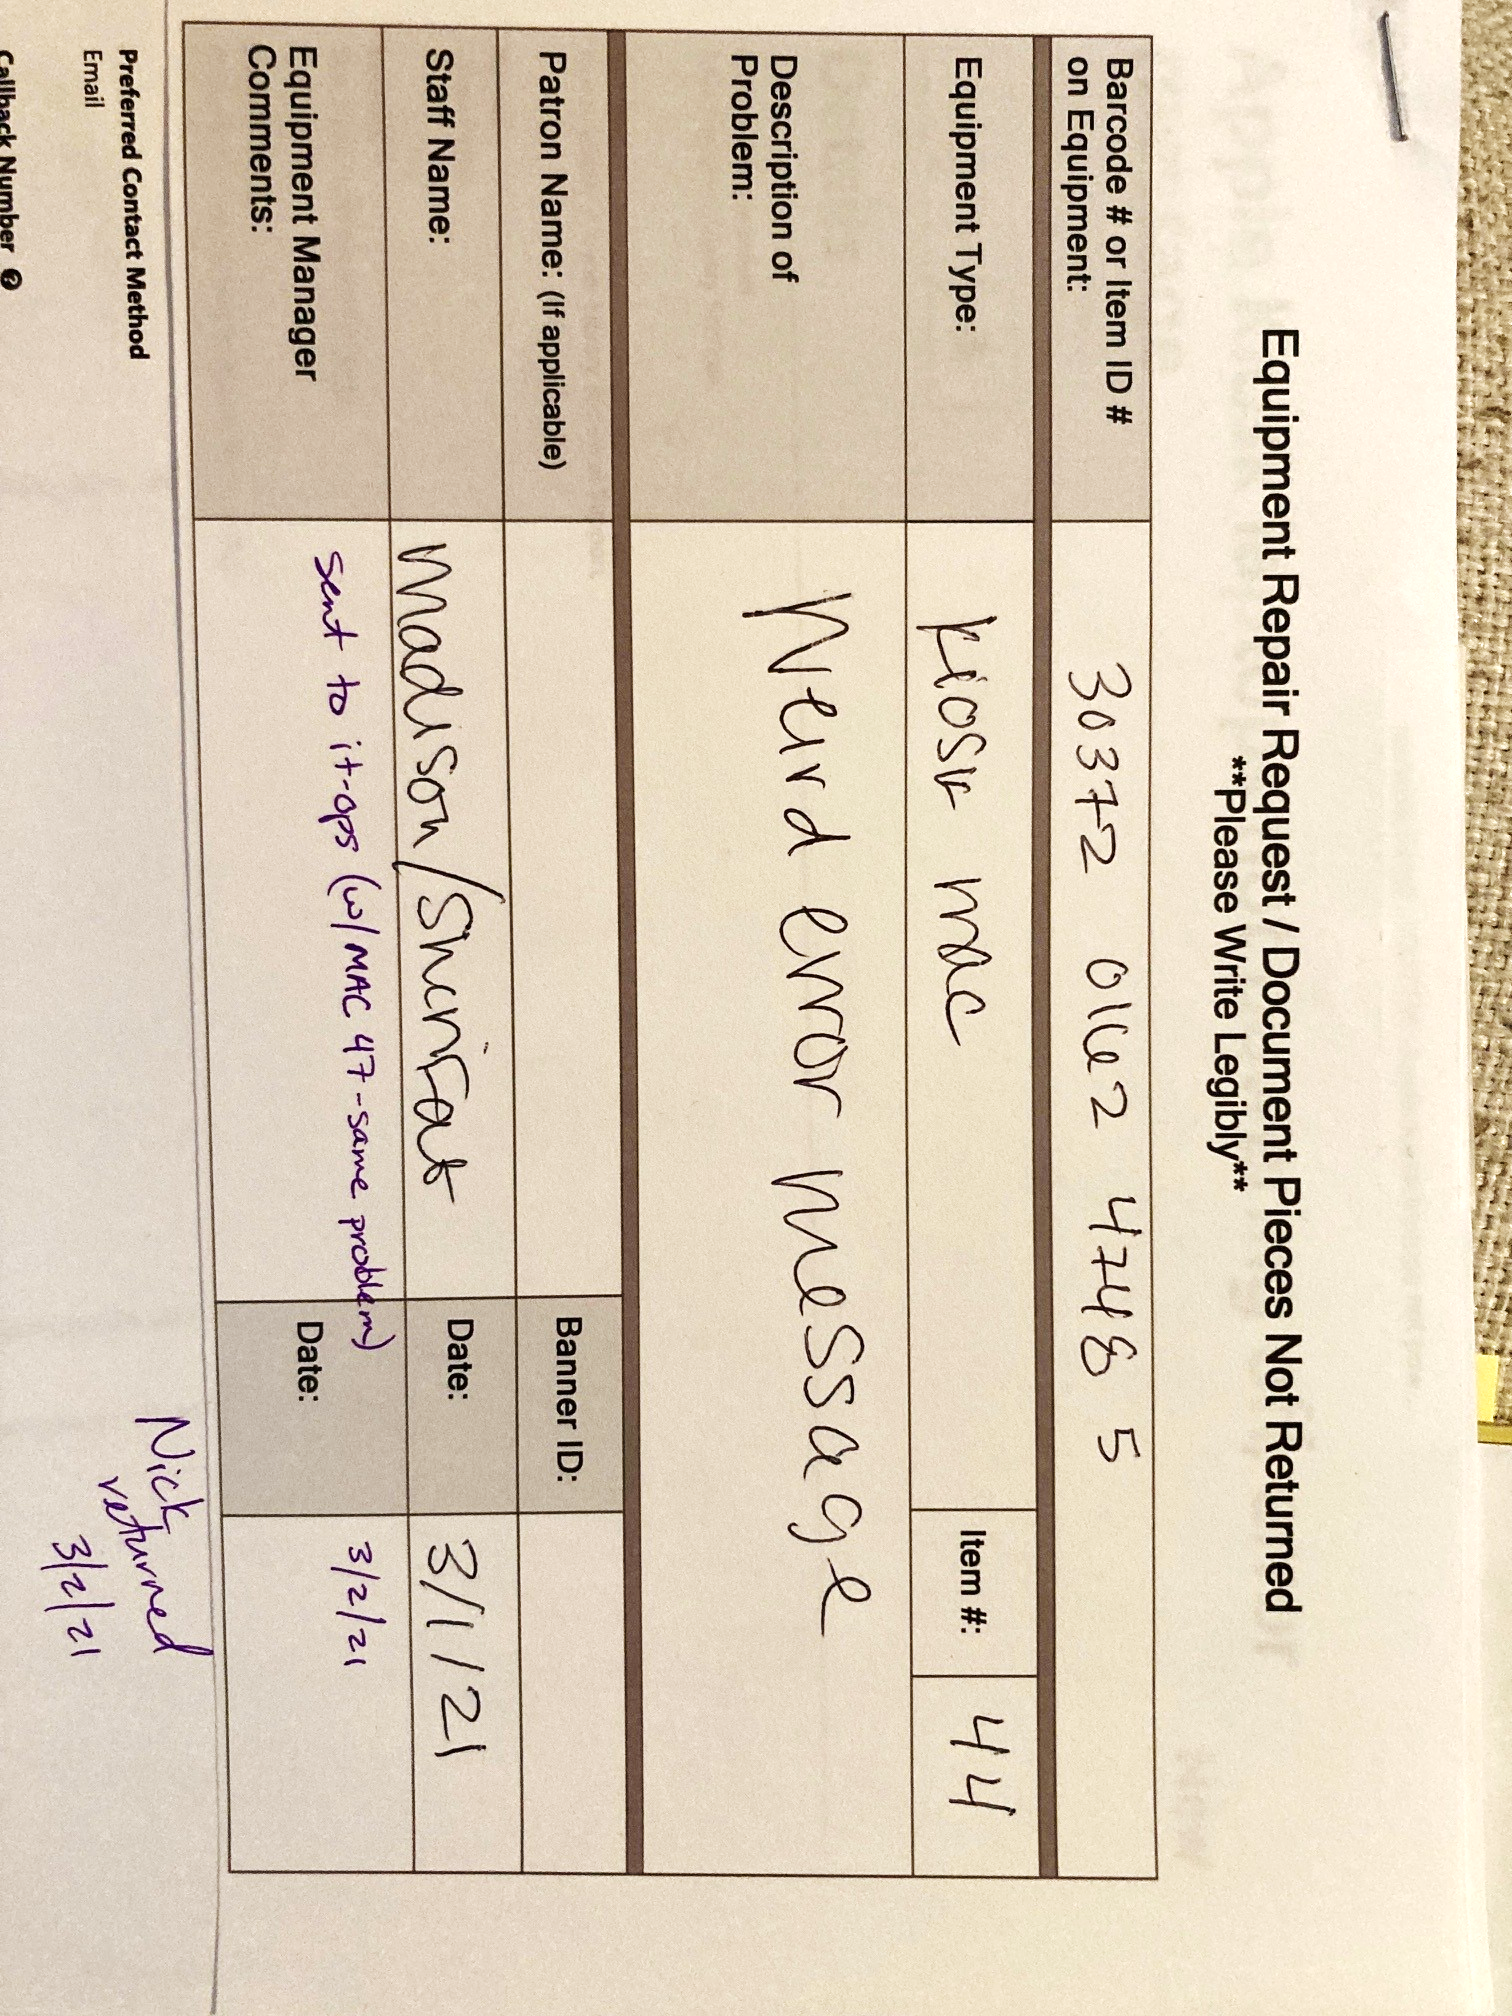 Equipment Repair Request / Document Pieces Not Returned
**Please Write Legibly**
Barcode # or Item ID #
on Equipment:
30372 0162 4748 5
Equipment Type:
Kiosk mac
Item #:
44
Description of
Problem:
Weird error message
Patron Name: (If applicable)
Banner ID:
Staff Name:
Madison/
Date:
3/1/21
Equipment Manager
Comments:
sent to it-ops (w/ MAC 47 - same problem)
Date:
3/2/21
Nick
returned
3/2/21
Preferred Contact Method
Email
Callback Number